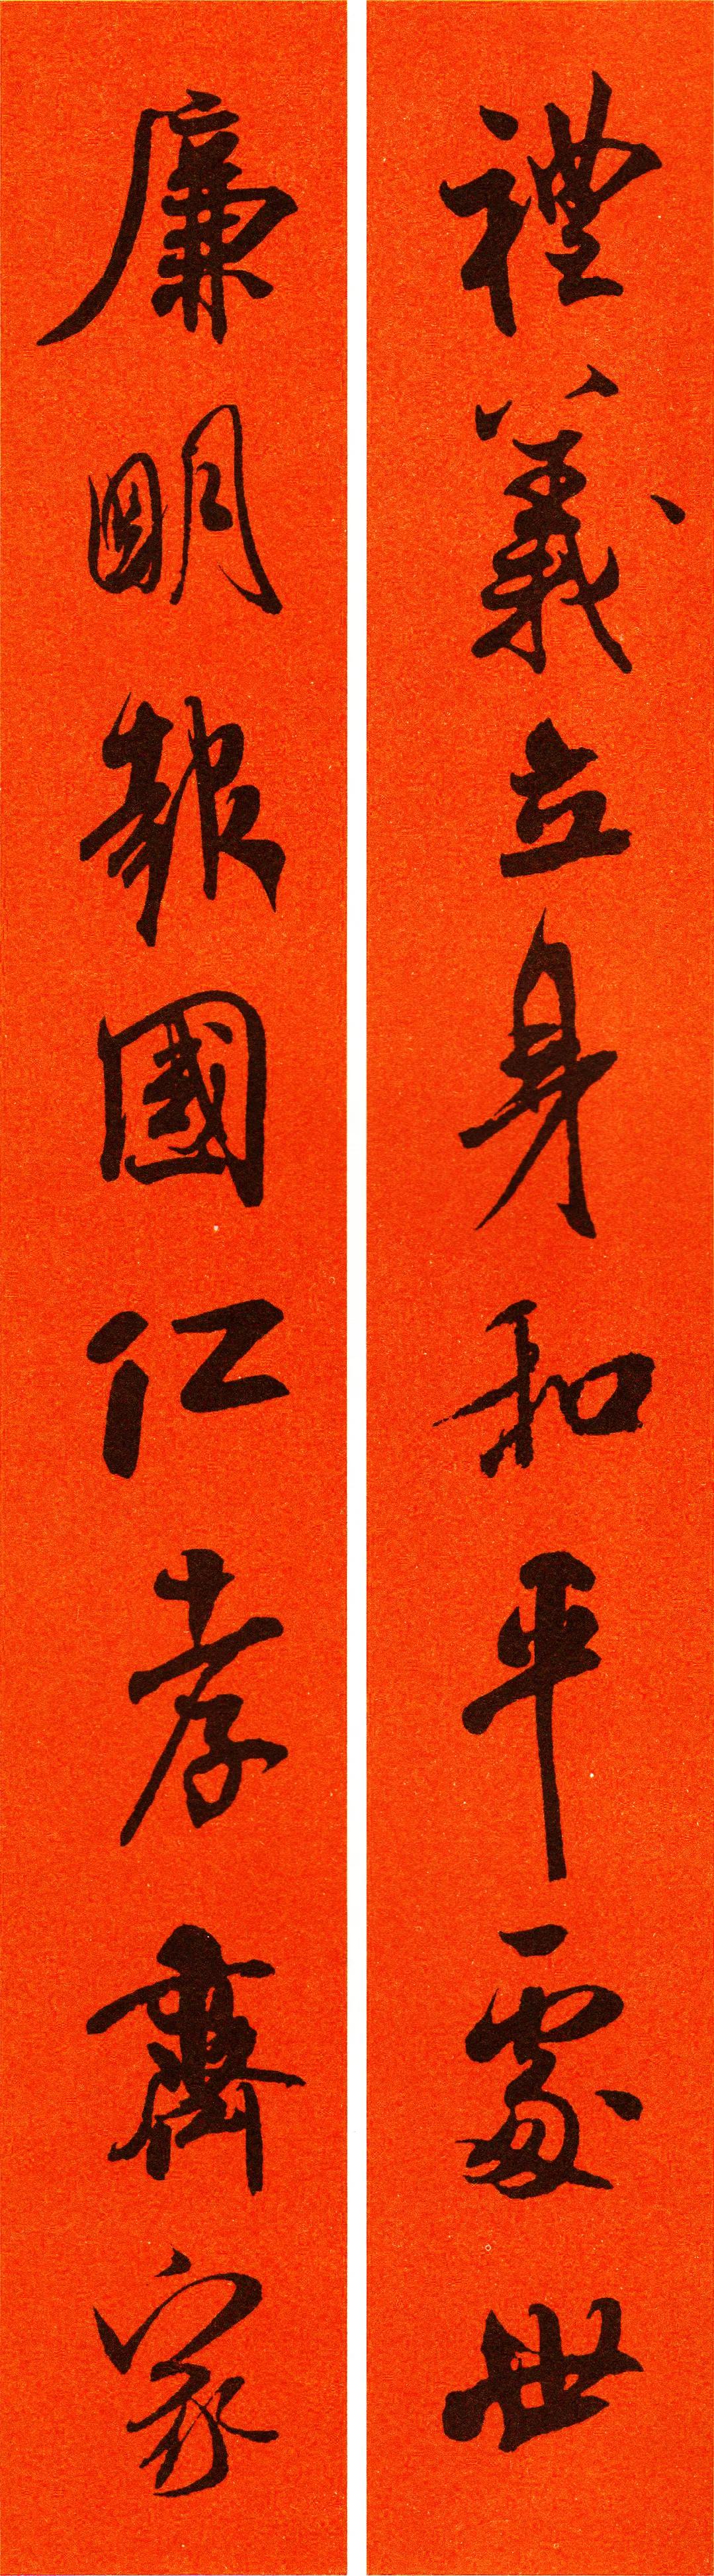 禮義立身和平處世
廉明報國仁孝齊家